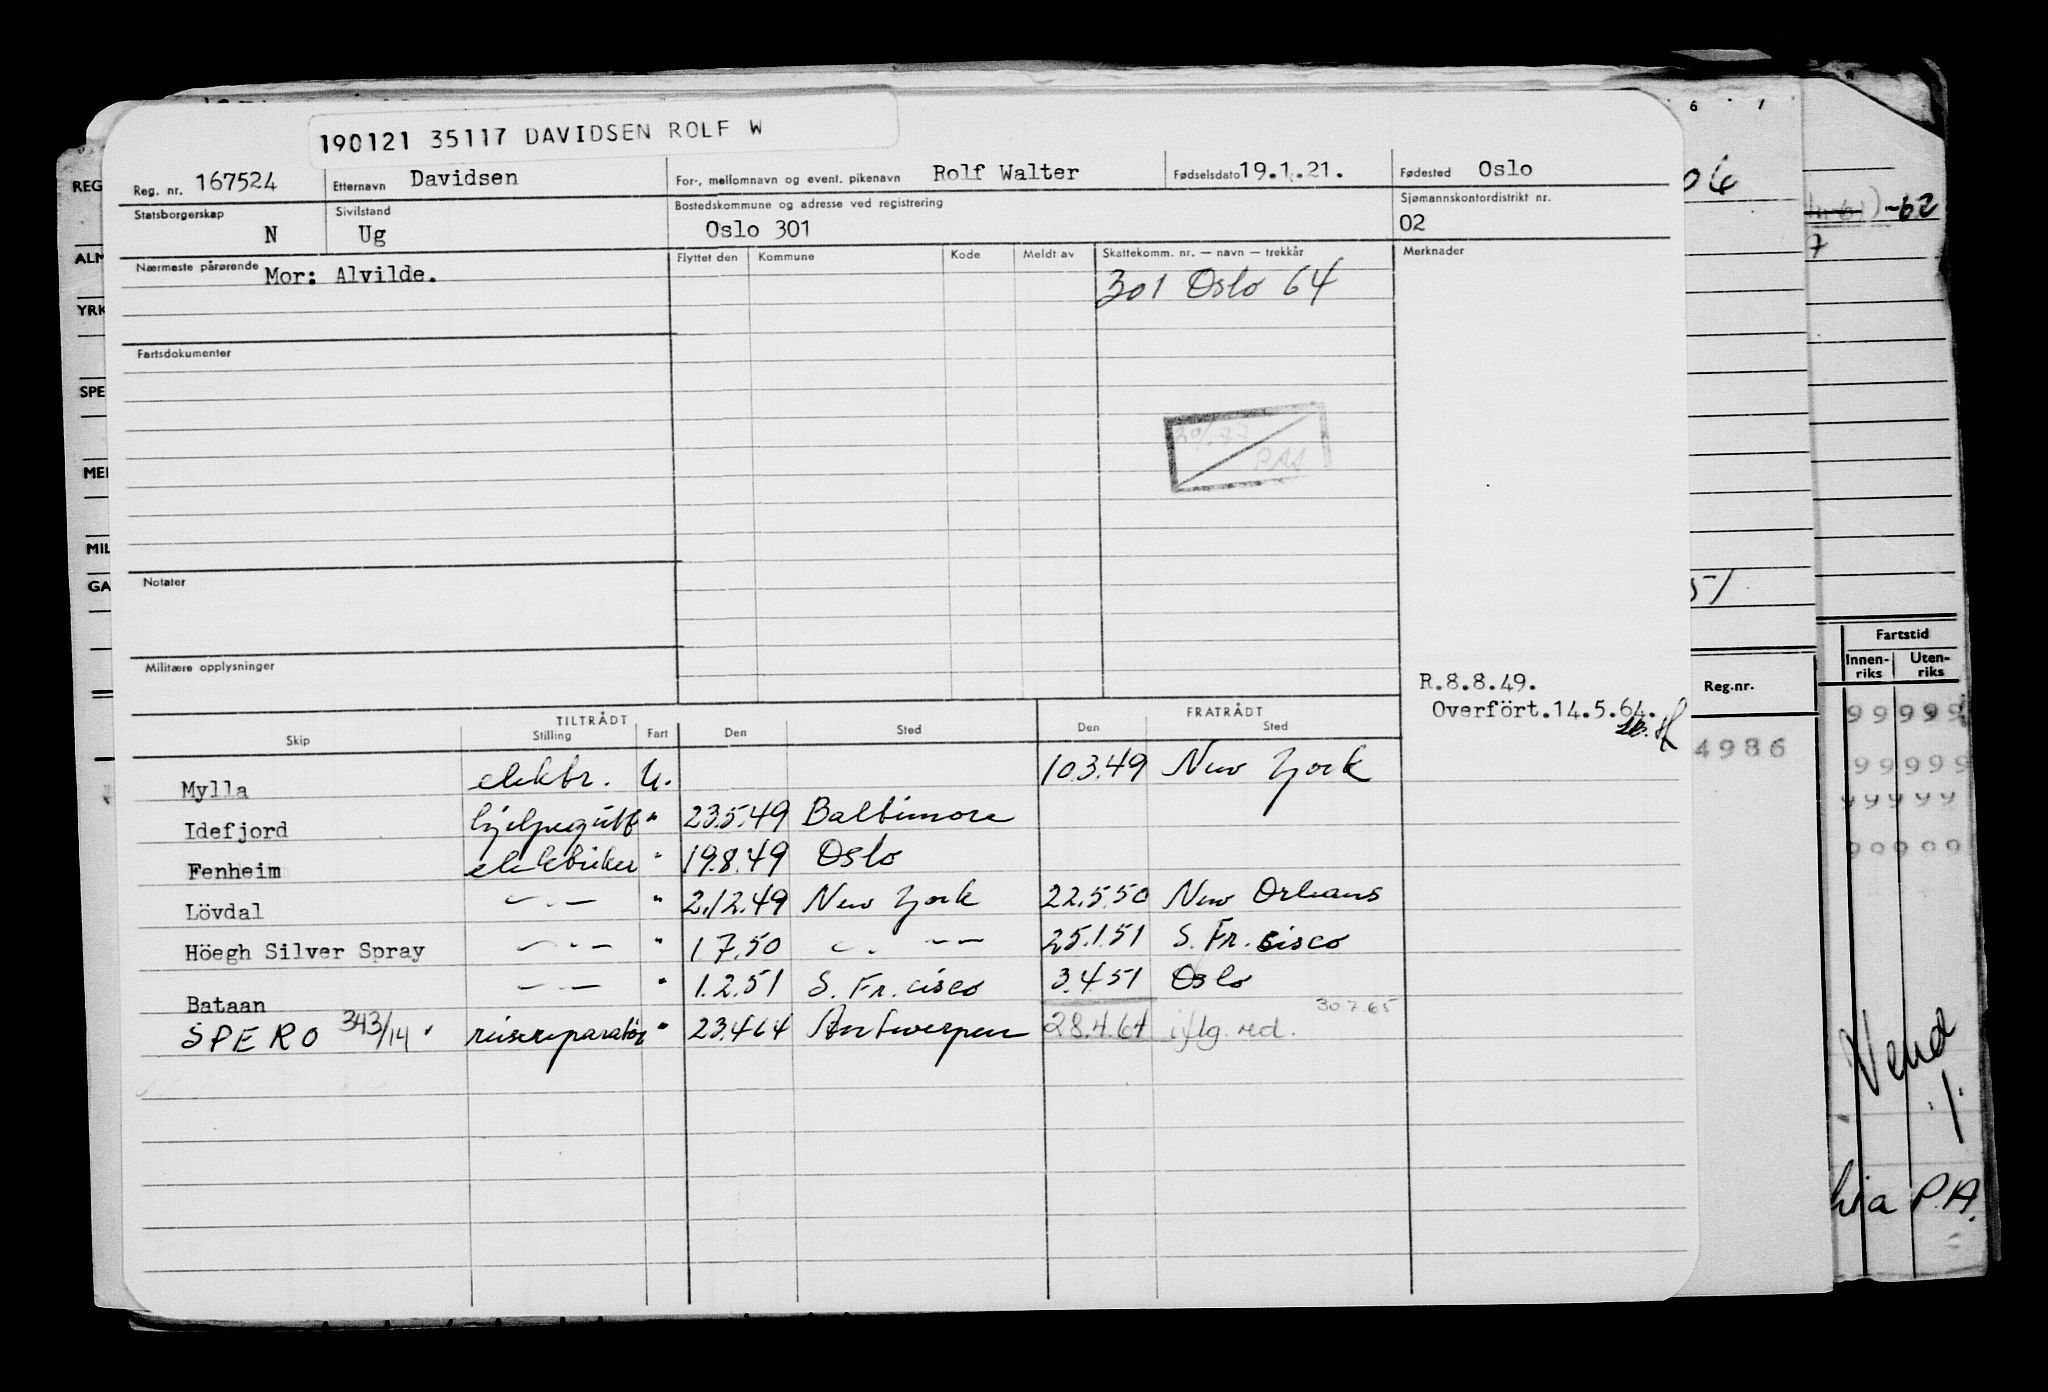 190121 35117 DAVIDSEN ROLF W
Reg. nr. 167524 Etternavn Davidsen For-, mellomnavn og event. pikenavn Rolf Walter Fødselsdato 19.1.21. Fødested Oslo
Statsborgerskap Sivilstand Bostedskommune og adresse ved registrering Sjømannskontordistrikt nr.
N Ug Oslo 301 02
Nærmeste pårørende Mor: Alvilde. Flyttet den Kommune Kode Meldt av Skattekomm. nr. — navn — trekkår Merknader
301 Oslo 64
Fartsdokumenter
PAS
Notater
Militære opplysninger
R.8.8.49.
Overfört.14.5.64.
TILTRÅDT FRATRÅDT
Skip Stilling Fart Den Sted Den Sted
Mylla elektr. U. 10.3.49 New York
Idefjord hjelpegutt " 23.5.49 Baltimore
Fenheim elektriker " 19.8.49 Oslo
Lövdal — " — " 2.12.49 New York 22.5.50 New Orleans
Höegh Silver Spray — " — " 1.7.50 — " — 25.1.51 S. Fr.cisco
Bataan — " — " 1.2.51 S. Fr.cisco 3.4.51 Oslo
30.7.65
SPERO 343/14 reisereparatør " 23.4.64 Antwerpen 28.4.64 iflg. red.
REG
ALM
YRK
SPE
MIL
GA
6 1
06
-62
7
51
Fartstid
Innen-riks Uten-riks
Reg.nr.
99999
4986
99999
99999
99999
P.A.